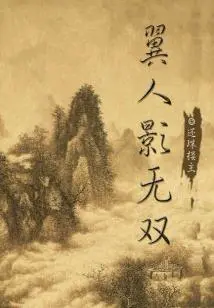 翼人影无双
还珠楼主